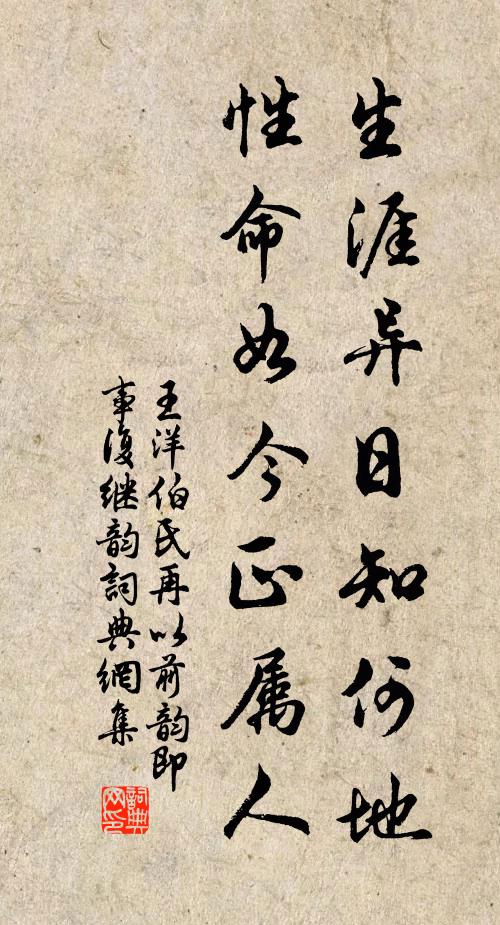 生涯异日知何地
性命如今正属人
王洋伯氏再以前韵即
事復继韵詞典網集
詞典网印